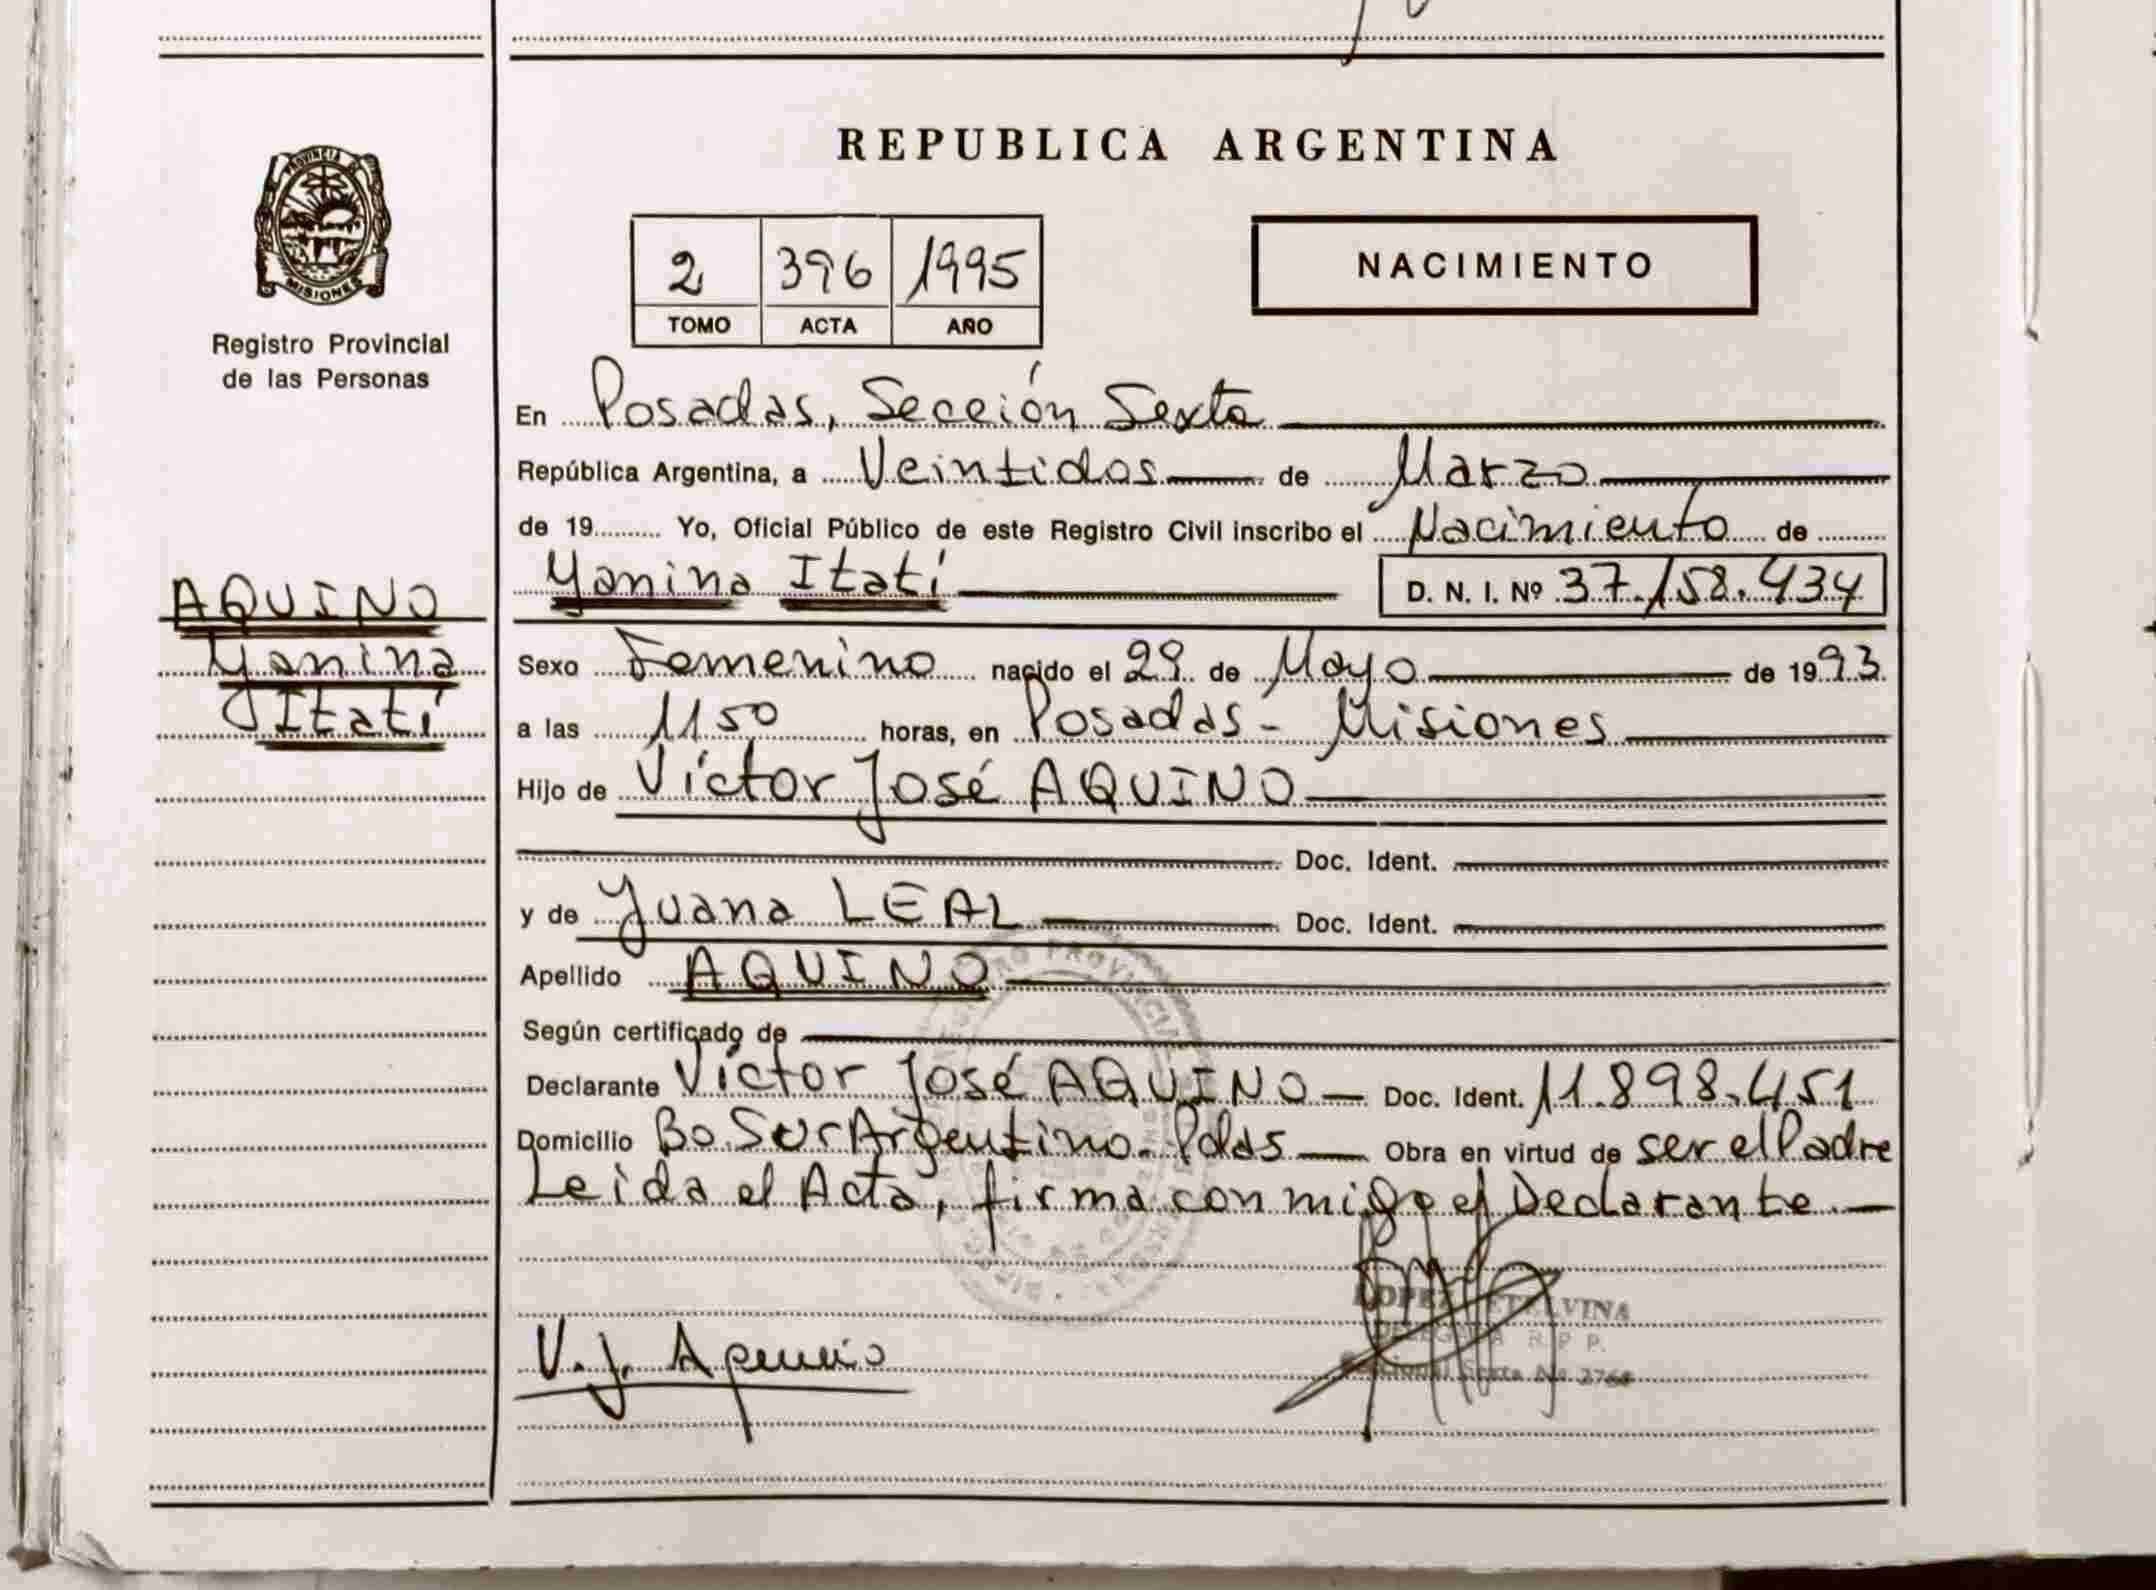 REPUBLICA ARGENTINA
PROVINCIA DE
MISIONES
Registro Provincial
de las Personas
2 396 1995
TOMO ACTA AÑO
NACIMIENTO
En Posadas, Sección Sexta
República Argentina, a Veintidos de Marzo
de 19 Yo, Oficial Público de este Registro Civil inscribo el Nacimiento de
Yanina Itatí D. N. I. Nº 37.158.434
AQUINO
Yanina
Itatí
Sexo Femenino nacido el 29 de Mayo de 1993
a las 11 50 horas, en Posadas - Misiones
Hijo de Víctor José AQUINO
Doc. Ident.
y de Juana LEAL Doc. Ident.
Apellido AQUINO
Según certificado de
Declarante Víctor José AQUINO Doc. Ident. 11.898.451
Domicilio Bo. Sur Argentino. Pdas Obra en virtud de ser el Padre
Leida el Acta, firma conmigo el Declarante.
V. J. Aquino
LOPEZ ETELVINA
DELEGADA R. P. P.
Seccional Sexta No 2768